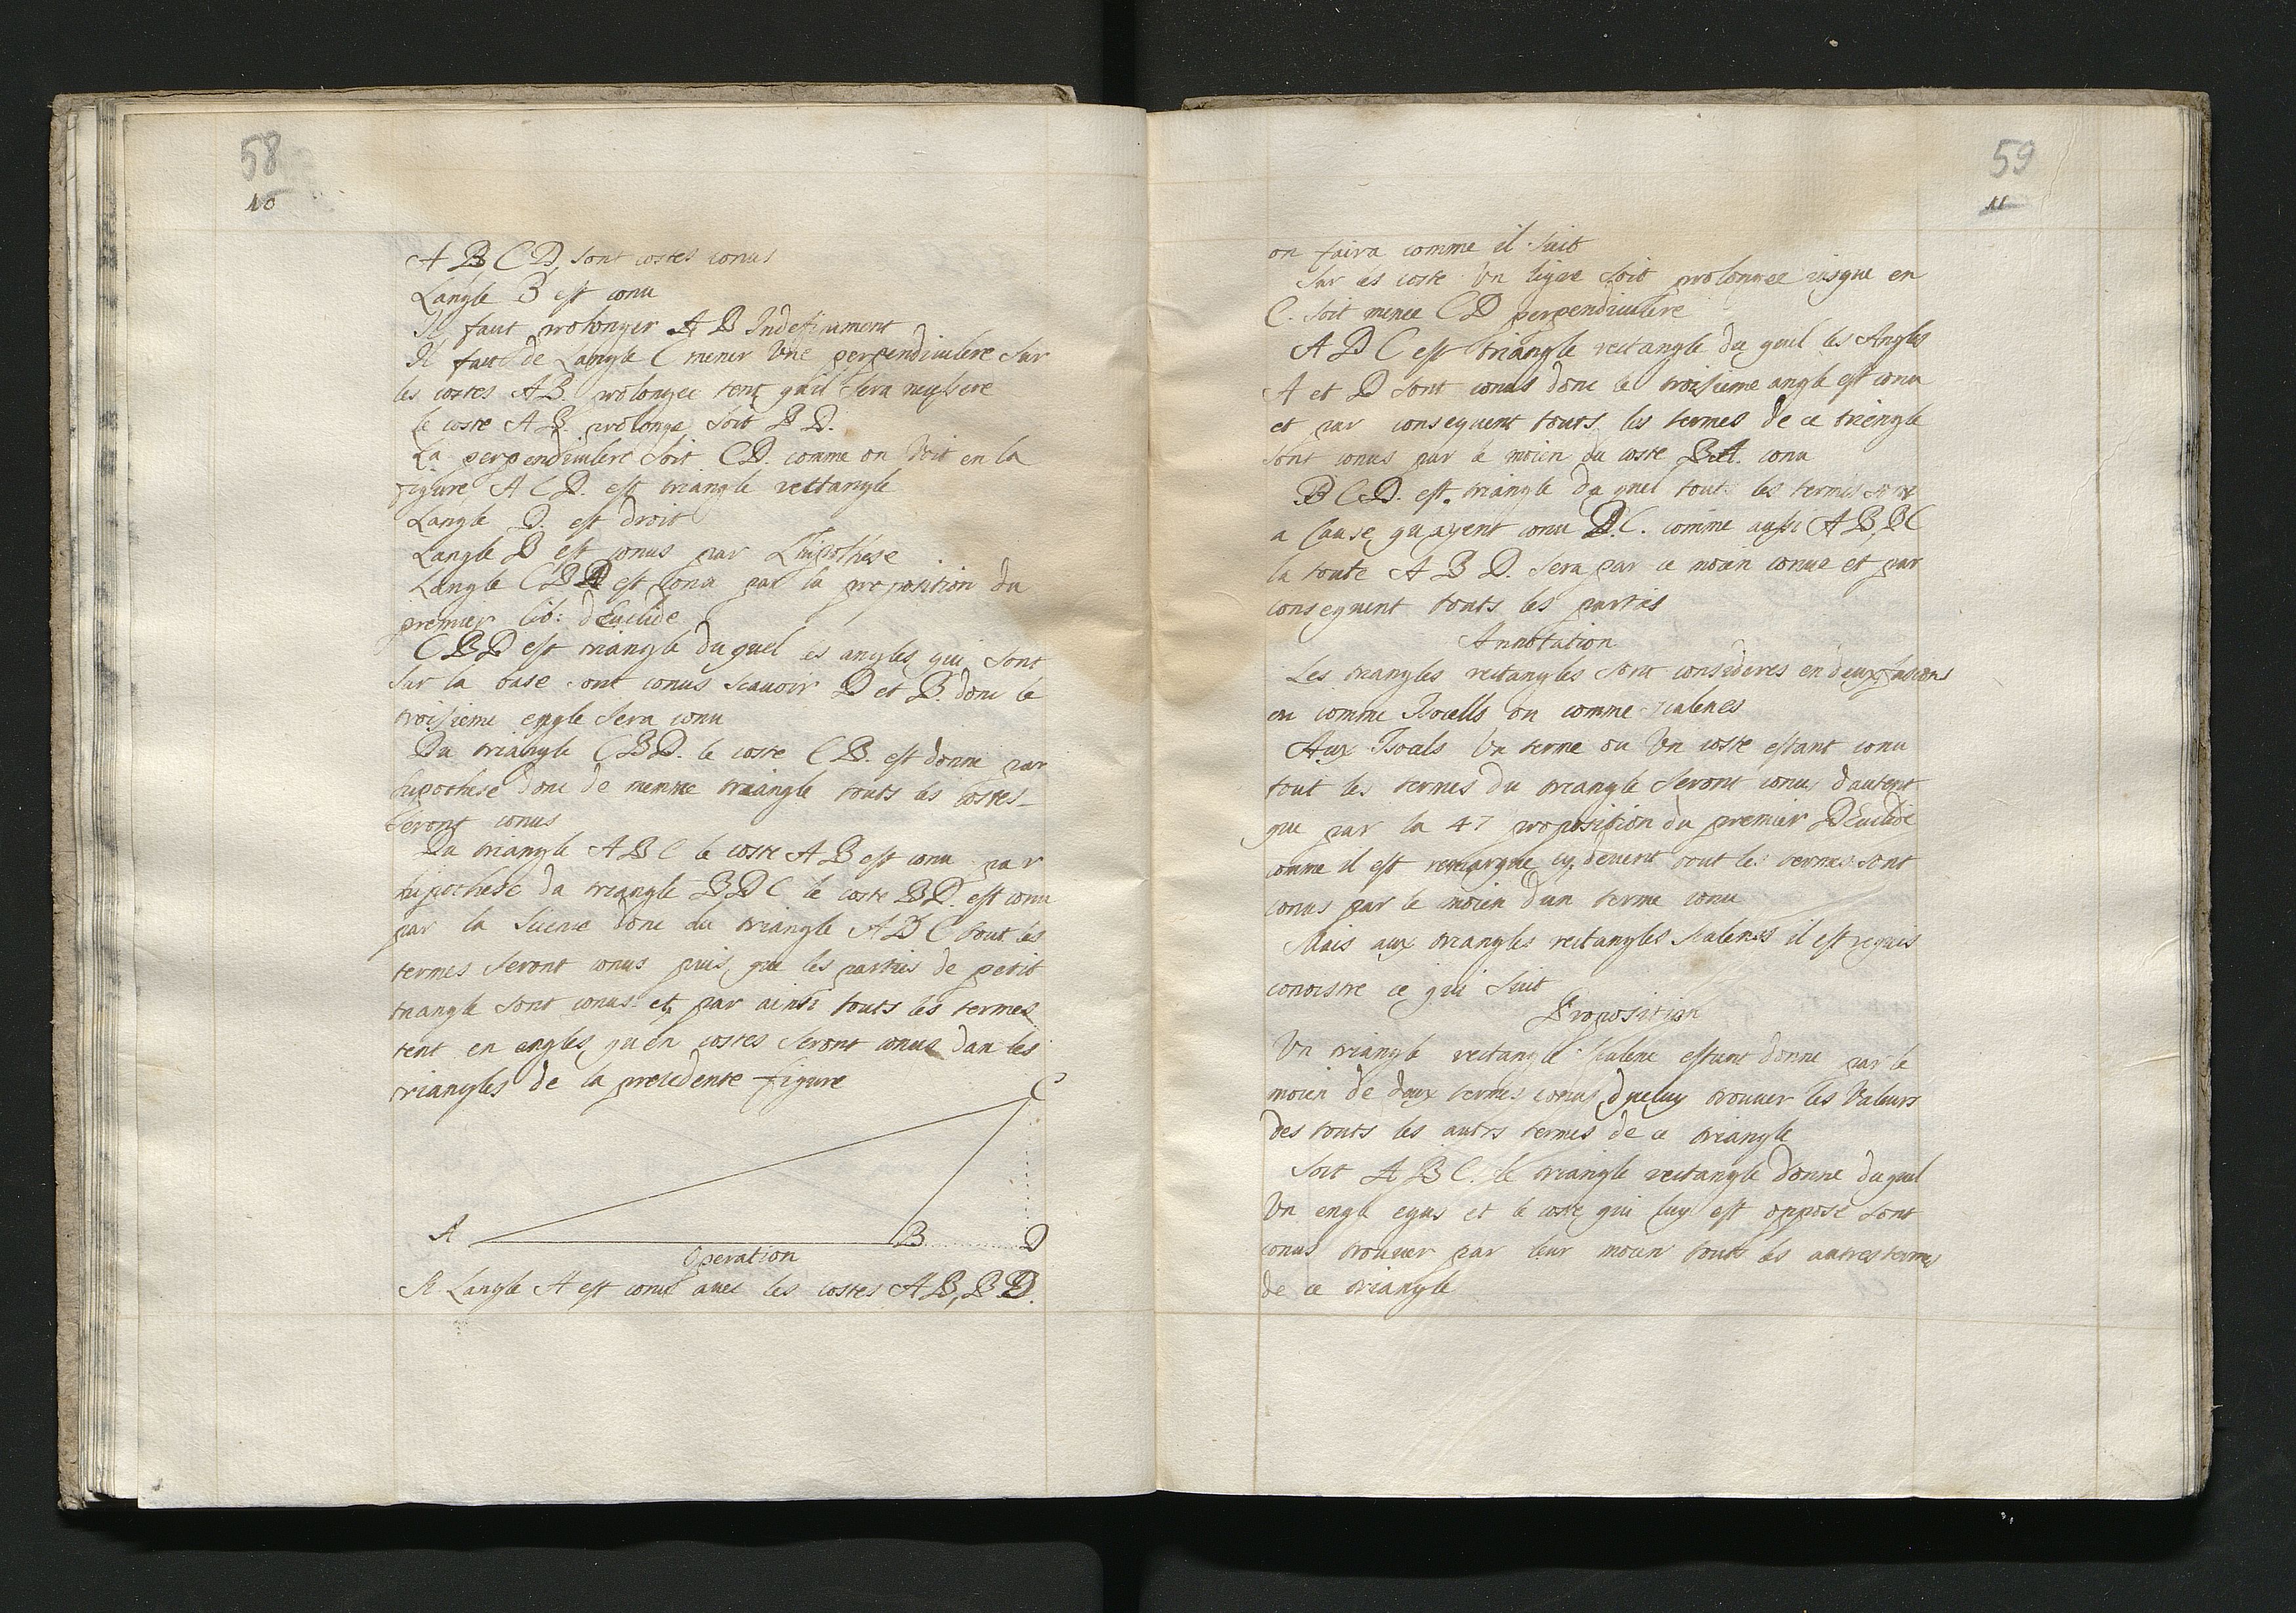 58
10
A B C D, sont costes conus
Langle B est conu
Il faut prolonger A B Indefinument
Il faut de Langle C mener Une perpendiculere sur
les costes AB. prolongee tent quil sera necessere
le coste A B. prolonge soit B D.
La perpendiculere soit CD. comme on Voit en la
figure A C D. est triangle rettangle
Langle D. est droit
Langle B est conus par Lhipothese
Langle C B D est conu par la proposition du
premier lib: dEuclide
C B D est triangle du quel es angles qui sont
sur la base sont conus scauoir D et B. donc le
troisieme engle sera conu
Du triangle C B D. le coste C B. est donne par
hipothese donc de memme triangle touts les costes
seront conus
Du triangle A B C le coste A B est conu par
hipothese du triangle B D C le coste B D. est conu
par la science donc du triangle A D C tout les
termes seront conus puis que les parties de petit
triangle sont conus et par ainsi touts les termes
tent en engles quen costes seront conus dan les
triangles de la precedente figure
C
A B D
Operation
Si Langle A est conu auec les costes A B, B D.
59
11
on faira comme il suit
Sur es coste Un ligne soit prolongee iusque en
C. soit menee CD perpendiculere
A D C est triangle rectangle du quel les Angles
A et D sont conus donc le troisieme angle est conu
et par consequent touts les termes de ce triengle
sont conus par le moien du coste B A. conu
B C D. est triangle du quel touts les termes sont
a Cause quayent conu D. C. comme aussi A B, B C
la toute A B D. sera par ce moien conue et par
consequent touts les parties
Annotation
Les triangles rectangles sont consideres en deux fasions
ou comme Isocells ou comme scalenes
Aux Isocels Un terme ou Un coste estant conu
tout les termes du triangle seront conus dautent
que par la 47 proposition du premier DEuclide
comme il est remarque cy deuent tout les termes sont
conus par le moien dun terme conu
Mais aux triangles rectangles scalenes il est requis
conoistre ce qui suit
Proposition
Un triangle rectangle scalene estant donne par le
moien de deux termes conus diceluy trouuer les Valeurs
des touts les autrs termes de ce triangle
Soit A B C. le triangle rectangle donne du quel
Un engle egus et le coste qui luy est oppose sont
conus trouuer par leur moien touts les autres termes
de ce triangle